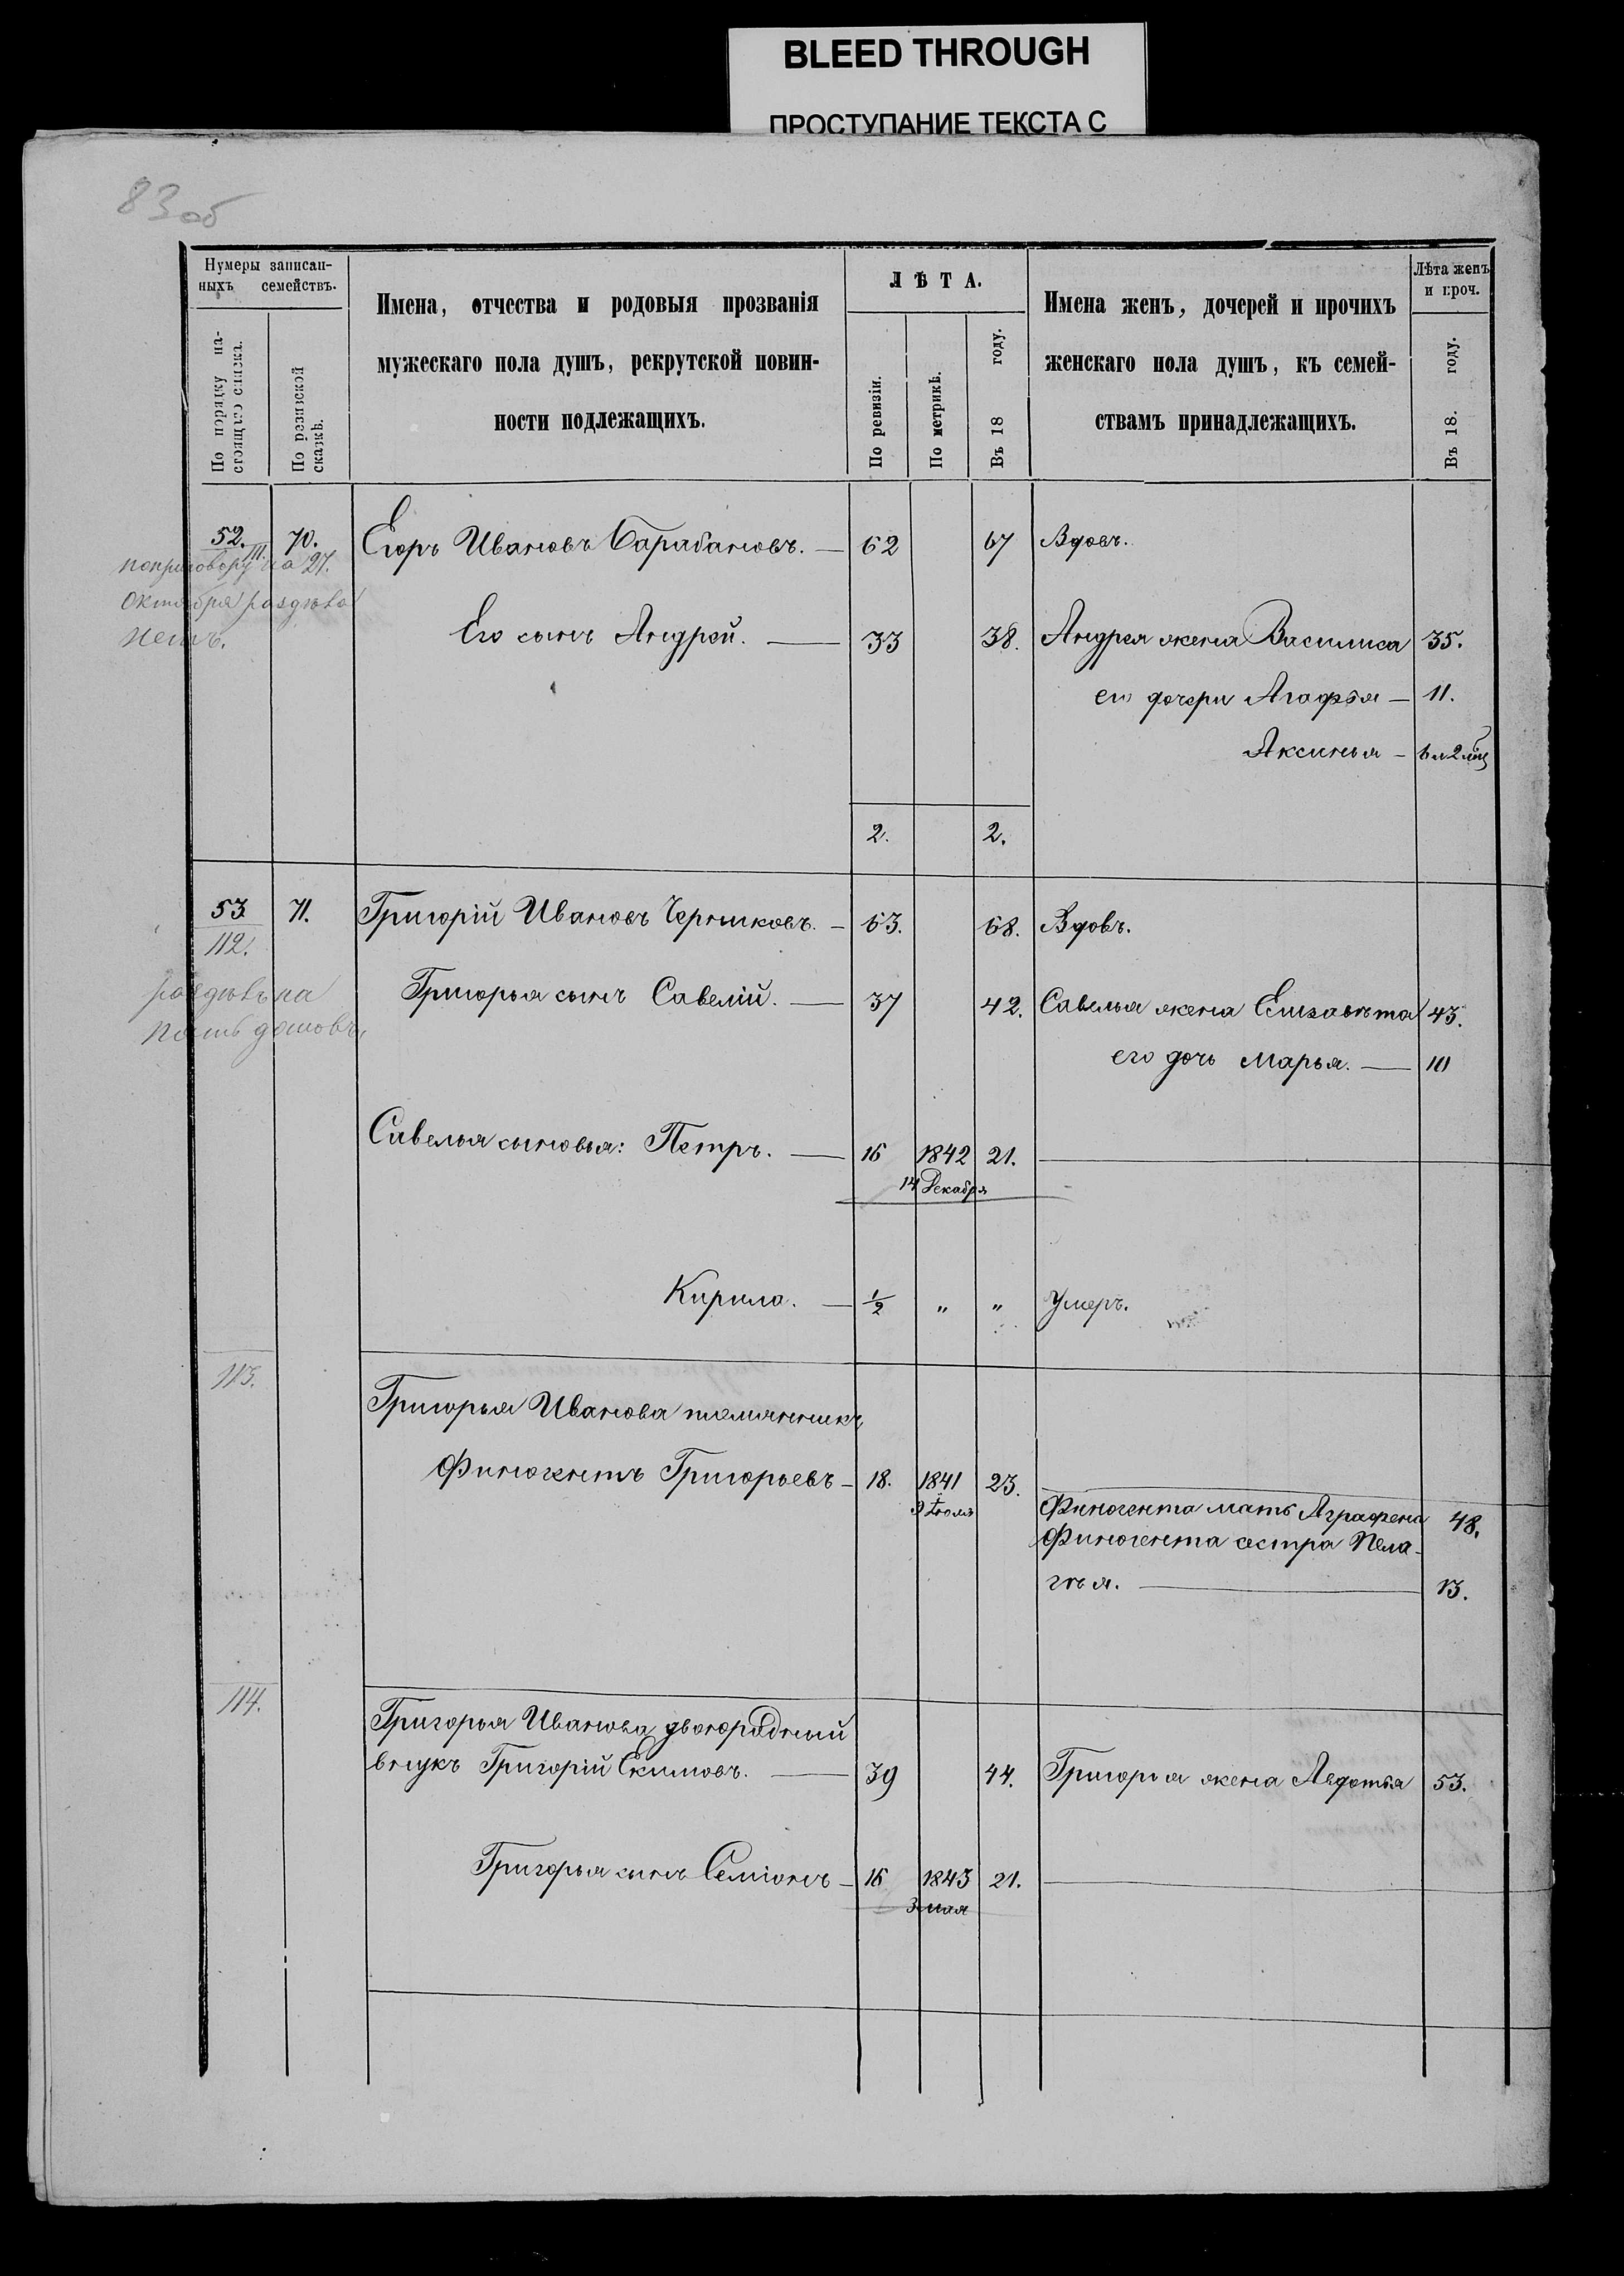 BLEED THROUGH
ПРОСТУПАНИЕ ТЕКСТА С
83 об
Нумеры записан-
ныхъ семействъ.
По порядку на-
стоящаго списка.
По ревизской
сказкѣ.
Имена, отчества и родовыя прозванія
мужескаго пола душъ, рекрутской повин-
ности подлежащихъ.
ЛѢТА.
По ревизіи.
По метрикѣ.
Въ 18 году.
Имена женъ, дочерей и прочихъ
женскаго пола душъ, къ семей-
ствамъ принадлежащихъ.
Лѣта женъ
и проч.
Въ 18. году.
52. 70. Егоръ Ивановъ Барабановъ. — 62 67 Вдовъ.
111.
поприговору на 27.
Октября раздѣла
нетъ.
Его сынъ Андрей. — 33 38. Андрея жена Василиса 35.
его дочери Агафья — 11.
Аксинья —
2. 2.
53 71. Григорій Ивановъ Черниковъ. — 63. 68. Вдовъ.
112.
раздѣлъ на
пять домовъ.
Григорья сынъ Савелій. — 37 42. Савелья жена Елизавѣта 43.
его дочь Марья. — 10
Савелья сыновья: Петръ. — 16 1842 21. —
14 Декабря
Кирило. — 1/2 " " Умеръ.
113.
Григорья Иванова племянникъ
Финогентъ Григорьевъ — 18. 1841 23. —
9 Іюля
Финогента мать Аграфена 48.
Финогента сестра Пела-
гѣя. — 13.
114.
Григорья Иванова двоюрадный
внукъ Григорій Екимовъ. — 39 44. Григорья жена Авдотья 53.
Григорья сынъ Семіонъ — 16 1843 21. —
3 мая